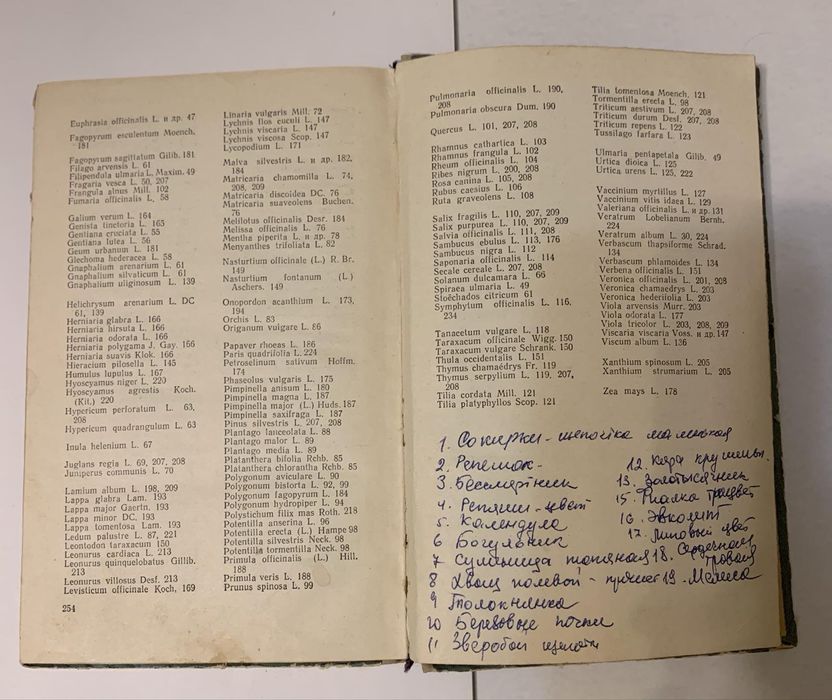 Euphrasia officinalis L. и др. 47
Fagopyrum esculentum Moench.
181
Fagopyrum sagittatum Gilib. 181
Filago arvensis L. 61
Filipendula ulmaria L. Maxim. 49
Fragaria vesca L. 50, 207
Frangula alnus Mill. 102
Fumaria officinalis L. 58
Galium verum L. 164
Genista tinctoria L. 165
Gentiana cruciata L. 55
Gentiana lutea L. 56
Geum urbanum L. 181
Glechoma hederacea L. 58
Gnaphalium arenarium L. 61
Gnaphalium silvaticum L. 61
Gnaphalium uliginosum L. 139
Helichrysum arenarium L. DC
61, 139
Herniaria glabra L. 166
Herniaria hirsuta L. 166
Herniaria odorata L. 166
Herniaria polygama J. Gay. 166
Herniaria suavis Klok. 166
Hieracium pilosella L. 145
Humulus lupulus L. 167
Hyoscyamus niger L. 220
Hyoscyamus agrestis Koch.
(Kil.) 220
Hypericum perforatum L. 63,
208
Hypericum quadrangulum L. 63
Inula helenium L. 67
Juglans regia L. 69, 207, 208
Juniperus communis L. 70
Lamium album L. 198, 209
Lappa glabra Lam. 193
Lappa major Gaertn. 193
Lappa minor DC. 193
Lappa tomentosa Lam. 193
Ledum palustre L. 87, 221
Leontodon taraxacum 150
Leonurus cardiaca L. 213
Leonurus quinquelobatus Gillib.
213
Leonurus villosus Desf. 213
Levisticum officinale Koch, 169
254
Linaria vulgaris Mill. 72
Lychnis flos cuculi L. 147
Lychnis viscaria L. 147
Lychnis viscosa Scop. 147
Lycopodium L. 171
Malva silvestris L. и др. 182,
184
Matricaria chamomilla L. 74,
208, 209
Matricaria discoidea DC. 76
Matricaria suaveolens Buchen.
76
Melilotus officinalis Desr. 184
Melissa officinalis L. 76
Mentha piperita L. и др. 78
Menyanthes trifoliata L. 82
Nasturtium officinale (L.) R. Br.
149
Nasturtium fontanum (L.)
Aschers. 149
Onopordon acanthium L. 173,
194
Orchis L. 83
Origanum vulgare L. 86
Papaver rhoeas L. 186
Paris quadrifolia L. 224
Petroselinum sativum Hoffm.
174
Phaseolus vulgaris L. 175
Pimpinella anisum L. 180
Pimpinella magna L. 187
Pimpinella major (L.) Huds. 187
Pimpinella saxifraga L. 187
Pinus silvestris L. 207, 208
Plantago lanceolata L. 88
Plantago malor L. 89
Plantago media L. 89
Platanthera bifolia Rchb. 85
Platanthera chlorantha Rchb. 85
Polygonum aviculare L. 90
Polygonum bistorta L. 92, 99
Polygonum fagopyrum L. 184
Polygonum hydropiper L. 94
Polystichum filix mas Roth. 218
Potentilla anserina L. 96
Potentilla erecta (L.) Hampe 98
Potentilla silvestris Neck. 98
Potentilla tormentilla Neck. 98
Primula officinalis (L.) Hill.
188
Primula veris L. 188
Prunus spinosa L. 99
Pulmonaria officinalis L. 190,
208
Pulmonaria obscura Dum. 190
Quercus L. 101, 207, 208
Rhamnus cathartica L. 103
Rhamnus frangula L. 102
Rheum officinalis L. 104
Ribes nigrum L. 200, 208
Rosa canina L. 105, 208
Rubus caesius L. 106
Ruta graveolens L. 108
Salix fragilis L. 110, 207, 209
Salix purpurea L. 110, 207, 209
Salvia officinalis L. 111, 208
Sambucus ebulus L. 113, 176
Sambucus nigra L. 112
Saponaria officinalis L. 114
Secale cereale L. 207, 208
Solanum dulcamara L. 66
Spiraea ulmaria L. 49
Stoëchados citricum 61
Symphytum officinalis L. 116,
234
Tanacetum vulgare L. 118
Taraxacum officinale Wigg. 150
Taraxacum vulgare Schrank. 150
Thula occidentalis L. 151
Thymus chamaédrys Fr. 119
Thymus serpylium L. 119, 207,
208
Tilia cordata Mill. 121
Tilia platyphyllos Scop. 121
Tilia tomentosa Moench. 121
Tormentilla erecta L. 98
Triticum aestivum L. 207, 208
Triticum durum Desf. 207, 208
Triticum repens L. 122
Tussilago farfara L. 123
Ulmaria pentapetala Gilib. 49
Urtica dioica L. 125
Urtica urens L. 125, 222
Vaccinium myrtillus L. 127
Vaccinium vitis idaea L. 129
Valeriana officinalis L. и др. 131
Veratrum Lobelianum Bernh.
224
Veratrum album L. 30, 224
Verbascum thapsiforme Schrad.
134
Verbascum phlamoides L. 134
Verbena officinalis L. 151
Veronica officinalis L. 201, 208
Veronica chamaedrys L. 203
Veronica hederifolia L. 203
Viola arvensis Murr. 203
Viola odorata L. 177
Viola tricolor L. 203, 208, 209
Viscaria viscaria Voss. и др. 147
Viscum album L. 136
Xanthium spinosum L. 205
Xanthium strumarium L. 205
Zea mays L. 178
1. Сокирки - щепотка маленькая
2. Репешок -
3. Бессмертник
4. Репяши - цвет
5. Календула
6 Богульник
7 Сушыница топяная
8 Хвощ полевой -
9 Толокнянка
10 Березовые почки
11 Зверобой щепотк
12. Кора крушины.
13. Золотысячник
15. Фиалка трецвет
16. Эвкалипт
17. Липовый цвет
18. Сердечная
трава
19. Мелиса